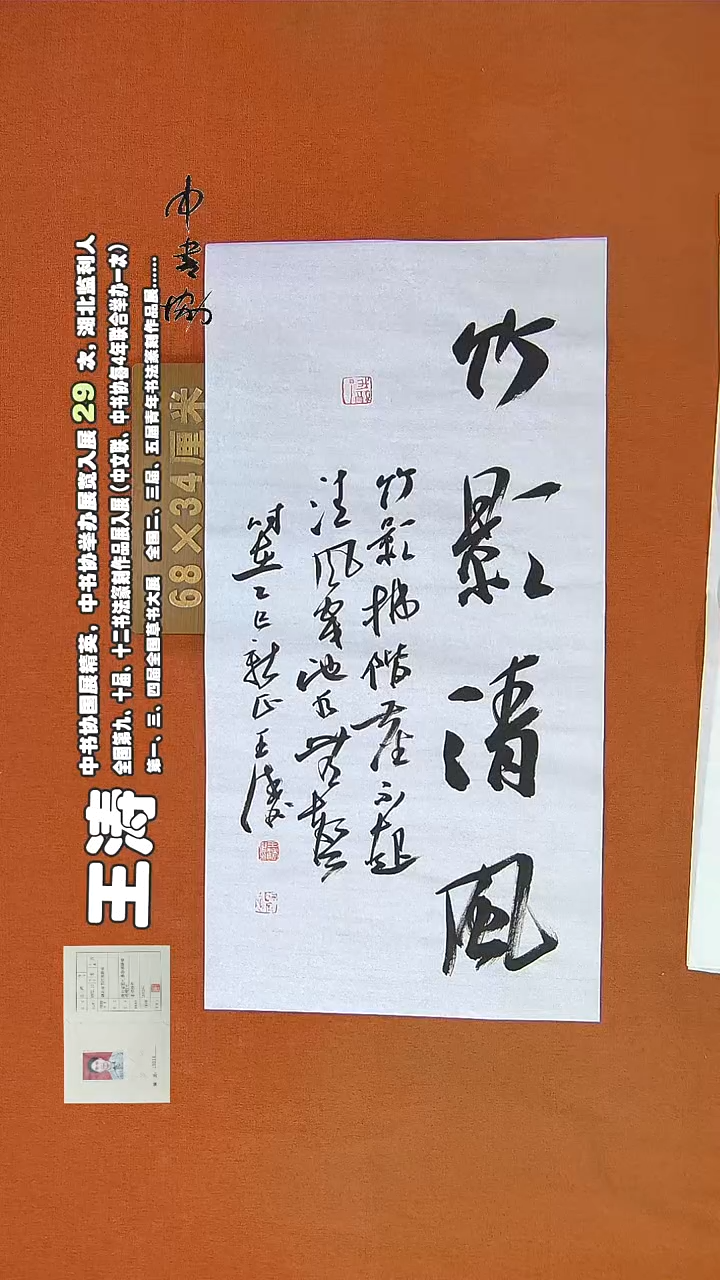 竹影清风
竹影掃階塵不起
清風穿池水無聲
时在乙巳新正王濤
中书协
68×34厘米
王涛
中书协国展精英，中书协举办展览入展 29 次，湖北监利人
全国第九、十届、十二书法篆刻作品展入展（中文联、中书协各4年联合举办一次）
第一、三、四届全国草书大展 全国二、三届、五届青年书法篆刻作品展......